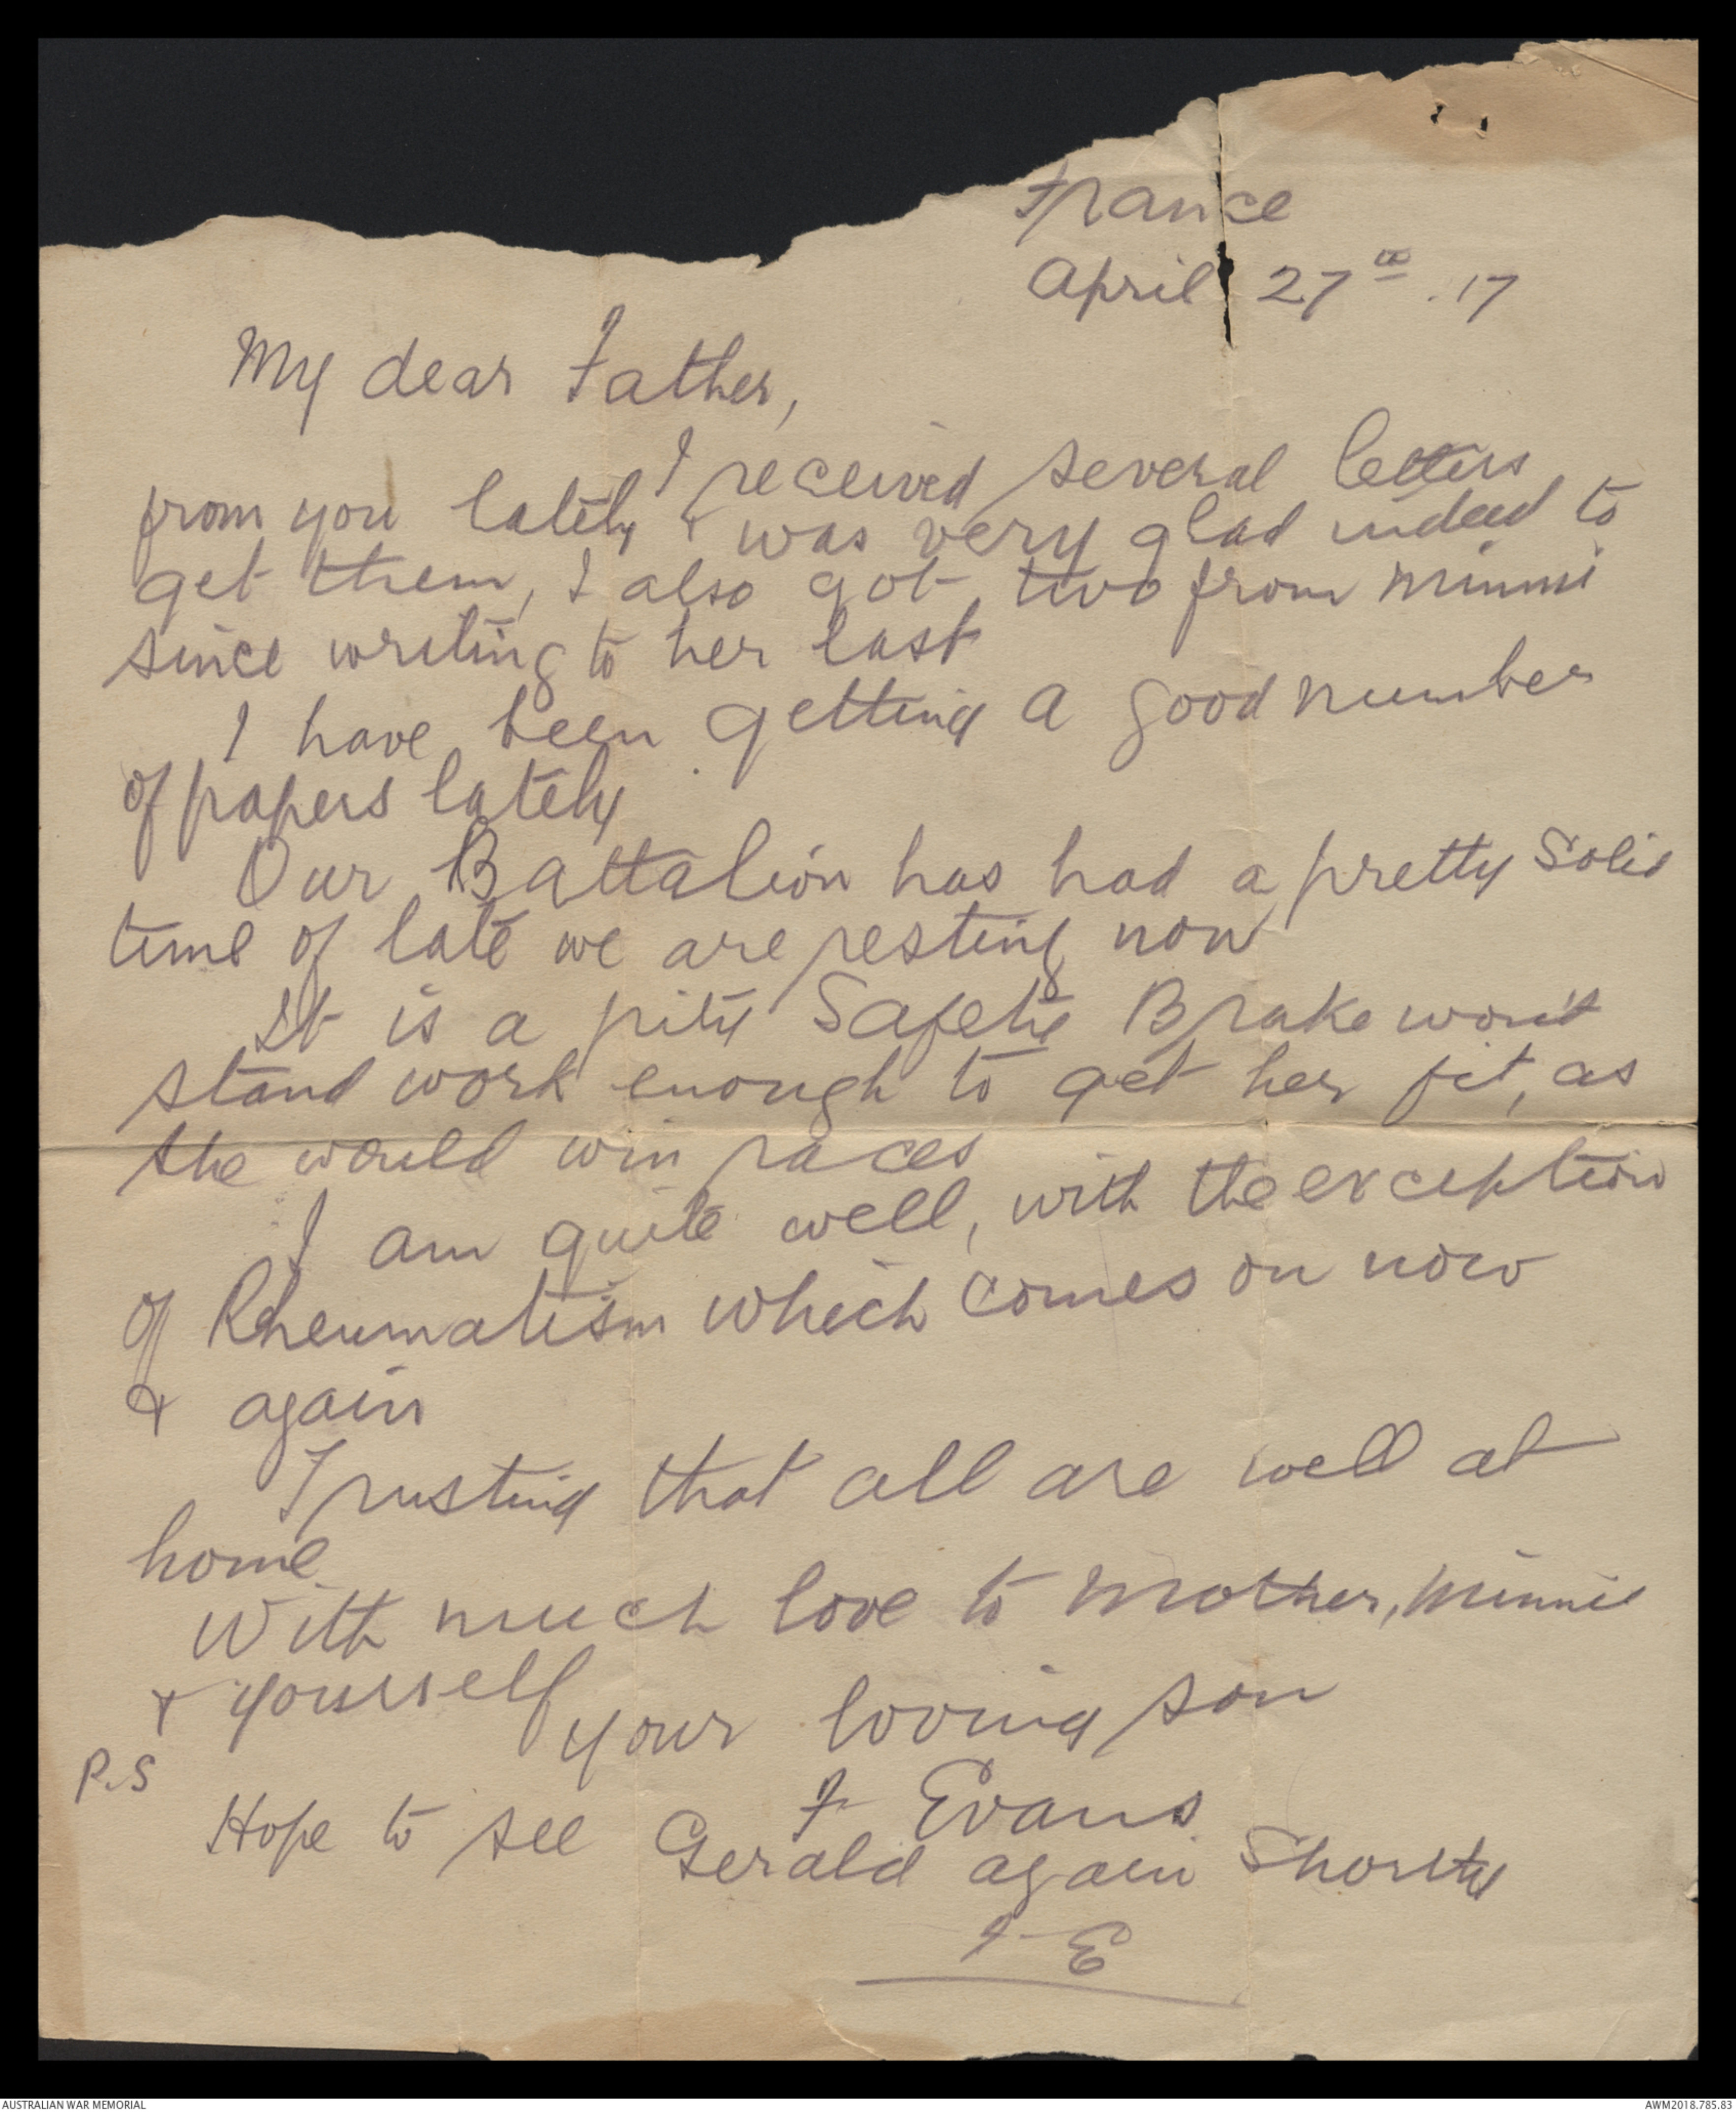 France
April 27th .17
My dear Father,
I received several letters
from you lately & was very glad indeed to
get them, I also got two from Minnie
since writing to her last
I have been getting a good number
of papers lately
Our Battalion has had a pretty solid
time of late we are resting now
It is a pity Safety Brake won't
stand work enough to get her fit, as
she would win races
I am quite well, with the exception
of Rheumatism which comes on now
& again
Trusting that all are well at
home
With much love to Mother, Minnie
& yourself
your loving son
F Evans
P.S
Hope to see Gerald again shortly
F E
AUSTRALIAN WAR MEMORIAL
AWM2018.785.83